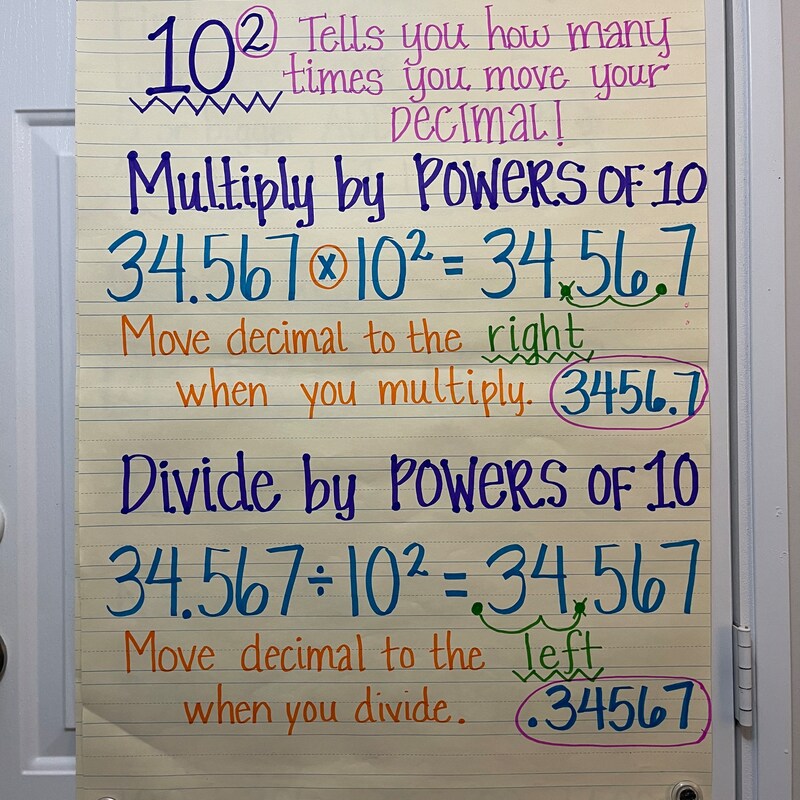 10² Tells you how many
times you move your
DECIMAL!
Multiply by POWERS OF 10
34.567 x 10² = 34.56.7
Move decimal to the right
when you multiply. 3456.7
Divide by POWERS OF 10
34.567 ÷ 10² = .34.567
Move decimal to the left
when you divide. .34567